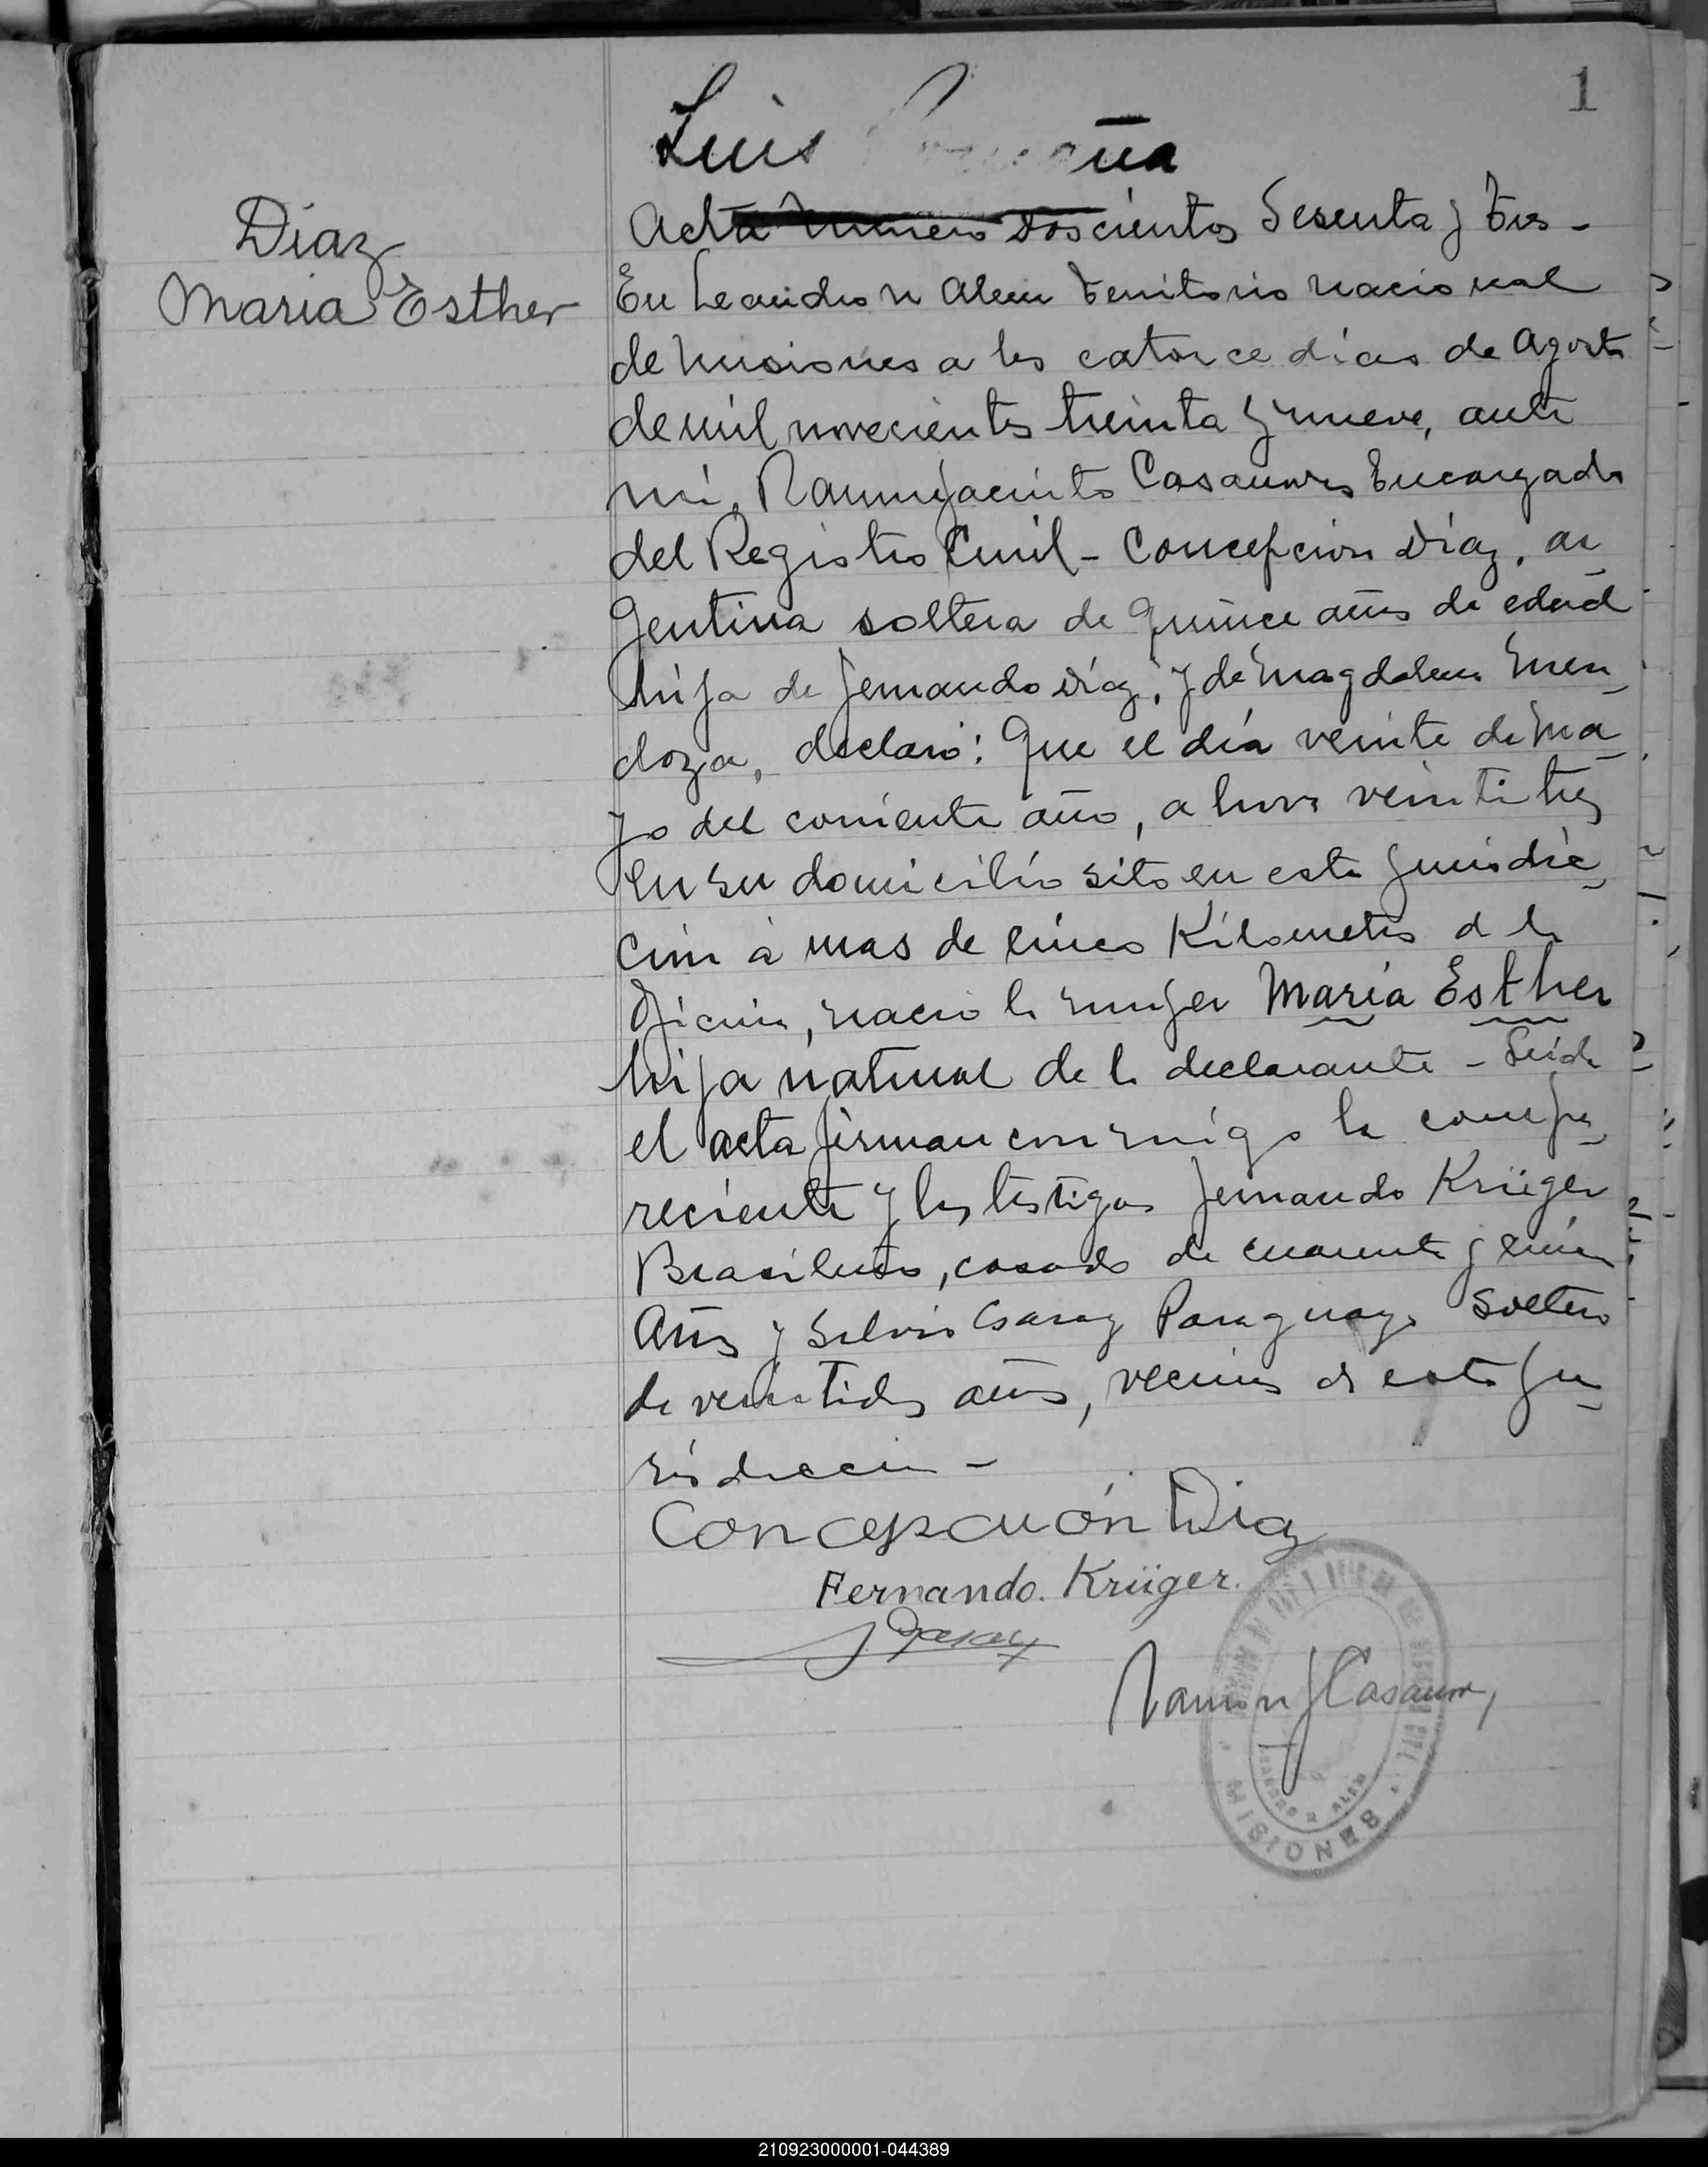 1
Luis
Diaz
Maria Esther
Acta número doscientos Sesenta y tres -
En Leandro N Alem Territorio nacional
de Misiones a los catorce días de Agosto
de mil novecientos treinta y nueve, ante
mí, Ramón Jacinto Casamores Encargado
del Registro Civil - Concepcion Díaz, ar
gentina soltera de quince años de edad
hija de Fernando Díaz, y de Magdalena Men
doza, declaró: Que el día veinte de Ma
yo del corriente año, a hora veintitres
en su domicilio sito en esta jurisdic
ción à mas de cinco Kilometros d la
Oficina, nacio la mujer Maria Esther
hija natural de la declarante - Leida
el acta firman conmigo la compa
reciente y los testigos Fernando Krüger
Brasileño, casado de cuarenta y cinco
Años y Silvio Garay Paraguayo Soltero
de veintidos años, vecinos de esta ju
risdiccion -
Concepción Diaz
Fernando. Krüger.
Garay
Ramon J Casamor
LEANDRO N ALEM
MISIONES
210923000001-044389